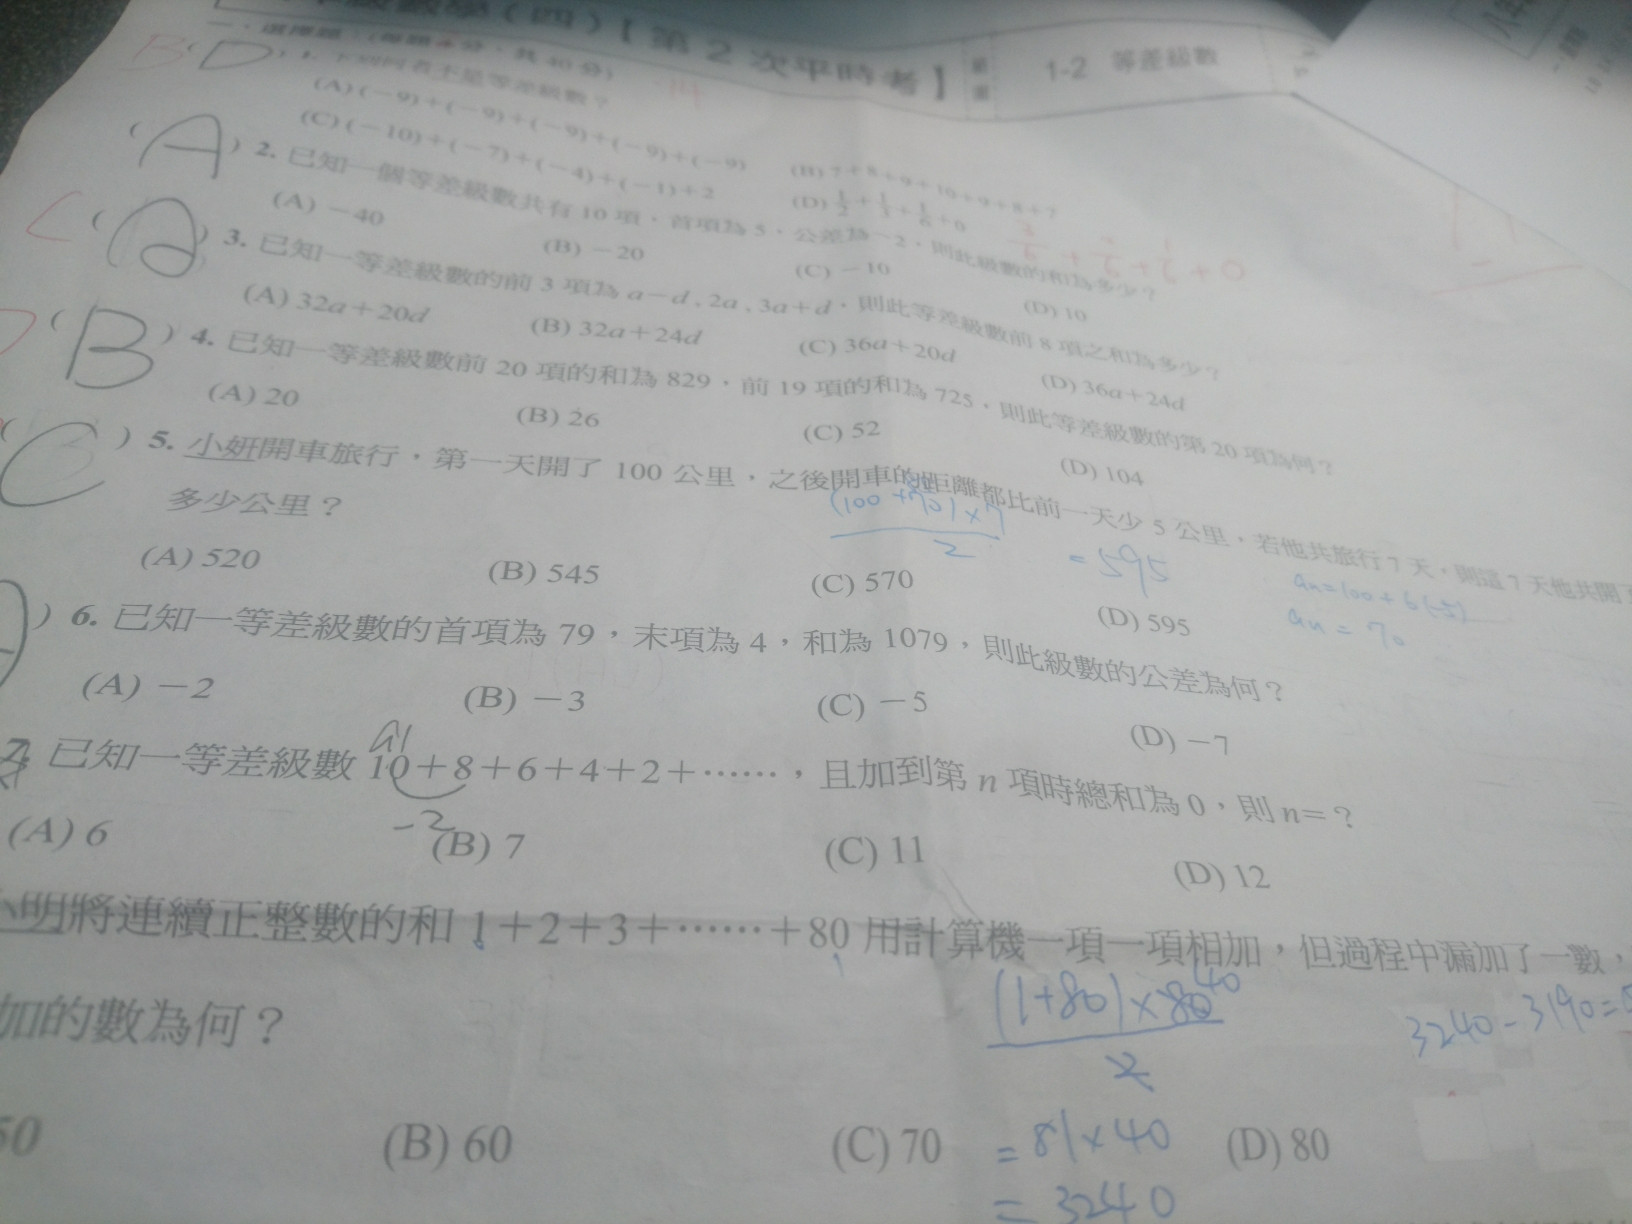 年級數學(四)【第2次平時考】 範圍 1-2 等差級數
一、選擇題：(每題4分，共40分)
B(D) 1. 下列何者不是等差級數？
(A) (-9)+(-9)+(-9)+(-9)+(-9) (B) 7+8+9+10+9+8+7
(C) (-10)+(-7)+(-4)+(-1)+2 (D) 1/2+1/3+1/6+0
(A) 2. 已知一個等差級數共有10項，首項為5，公差為-2，則此級數的和為多少？
(A) -40 (B) -20 (C) -10 (D) 10
3. 已知一等差級數的前3項為 a-d、2a、3a+d，則此等差級數前8項之和為多少？
(A) 32a+20d (B) 32a+24d (C) 36a+20d (D) 36a+24d
(B) 4. 已知一等差級數前20項的和為829，前19項的和為725，則此等差級數的第20項為何？
(A) 20 (B) 26 (C) 52 (D) 104
(C) 5. 小妍開車旅行，第一天開了100公里，之後開車的距離都比前一天少5公里，若他共旅行7天，則這7天他共開
多少公里？
(100+70)×7
2
=595
an=100+6(-5)
an=70
(A) 520 (B) 545 (C) 570 (D) 595
) 6. 已知一等差級數的首項為79，末項為4，和為1079，則此級數的公差為何？
(A) -2 (B) -3 (C) -5 (D) -7
a1
已知一等差級數10+8+6+4+2+……，且加到第n項時總和為0，則n=？
-2
(A) 6 (B) 7 (C) 11 (D) 12
小明將連續正整數的和1+2+3+……+80用計算機一項一項相加，但過程中漏加了一數，
加的數為何？
(1+80)×80 40
2
3240-3190=
50 (B) 60 (C) 70 (D) 80
=81×40
=3240